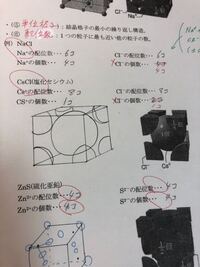 Cl⁻ Na⁺
・(① 単位格子 ) : 結晶格子の最小の繰り返し構造。
・(② 配位数 ) : 1つの粒子に最も近い他の粒子の数。
例) NaCl
Na⁺の配位数・・・6コ Cl⁻の配位数・・・6コ
Na⁺の個数・・・4コ Cl⁻の個数・・・4コ
CsCl(塩化セシウム)
の配位数・・・8コ Cl⁻の配位数・・・
CS⁺の個数・・・1コ Cl⁻の個数・・・
Cl⁻ Cs⁺
ZnS(硫化亜鉛)
Zn²⁺の配位数・・・4コ S²⁻の配位数・・・4コ
Zn²⁺の個数・・・4コ S²⁻の個数・・・